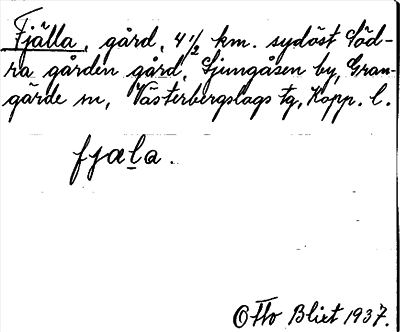 Fjälla, gård, 4 1/2 km. sydöst Söd-
ra gården gård, Ljungåsen by, Gran-
gärde sn, Västerbergslags tg, Kopp. l.
fjala.
Otto Blixt 1937.